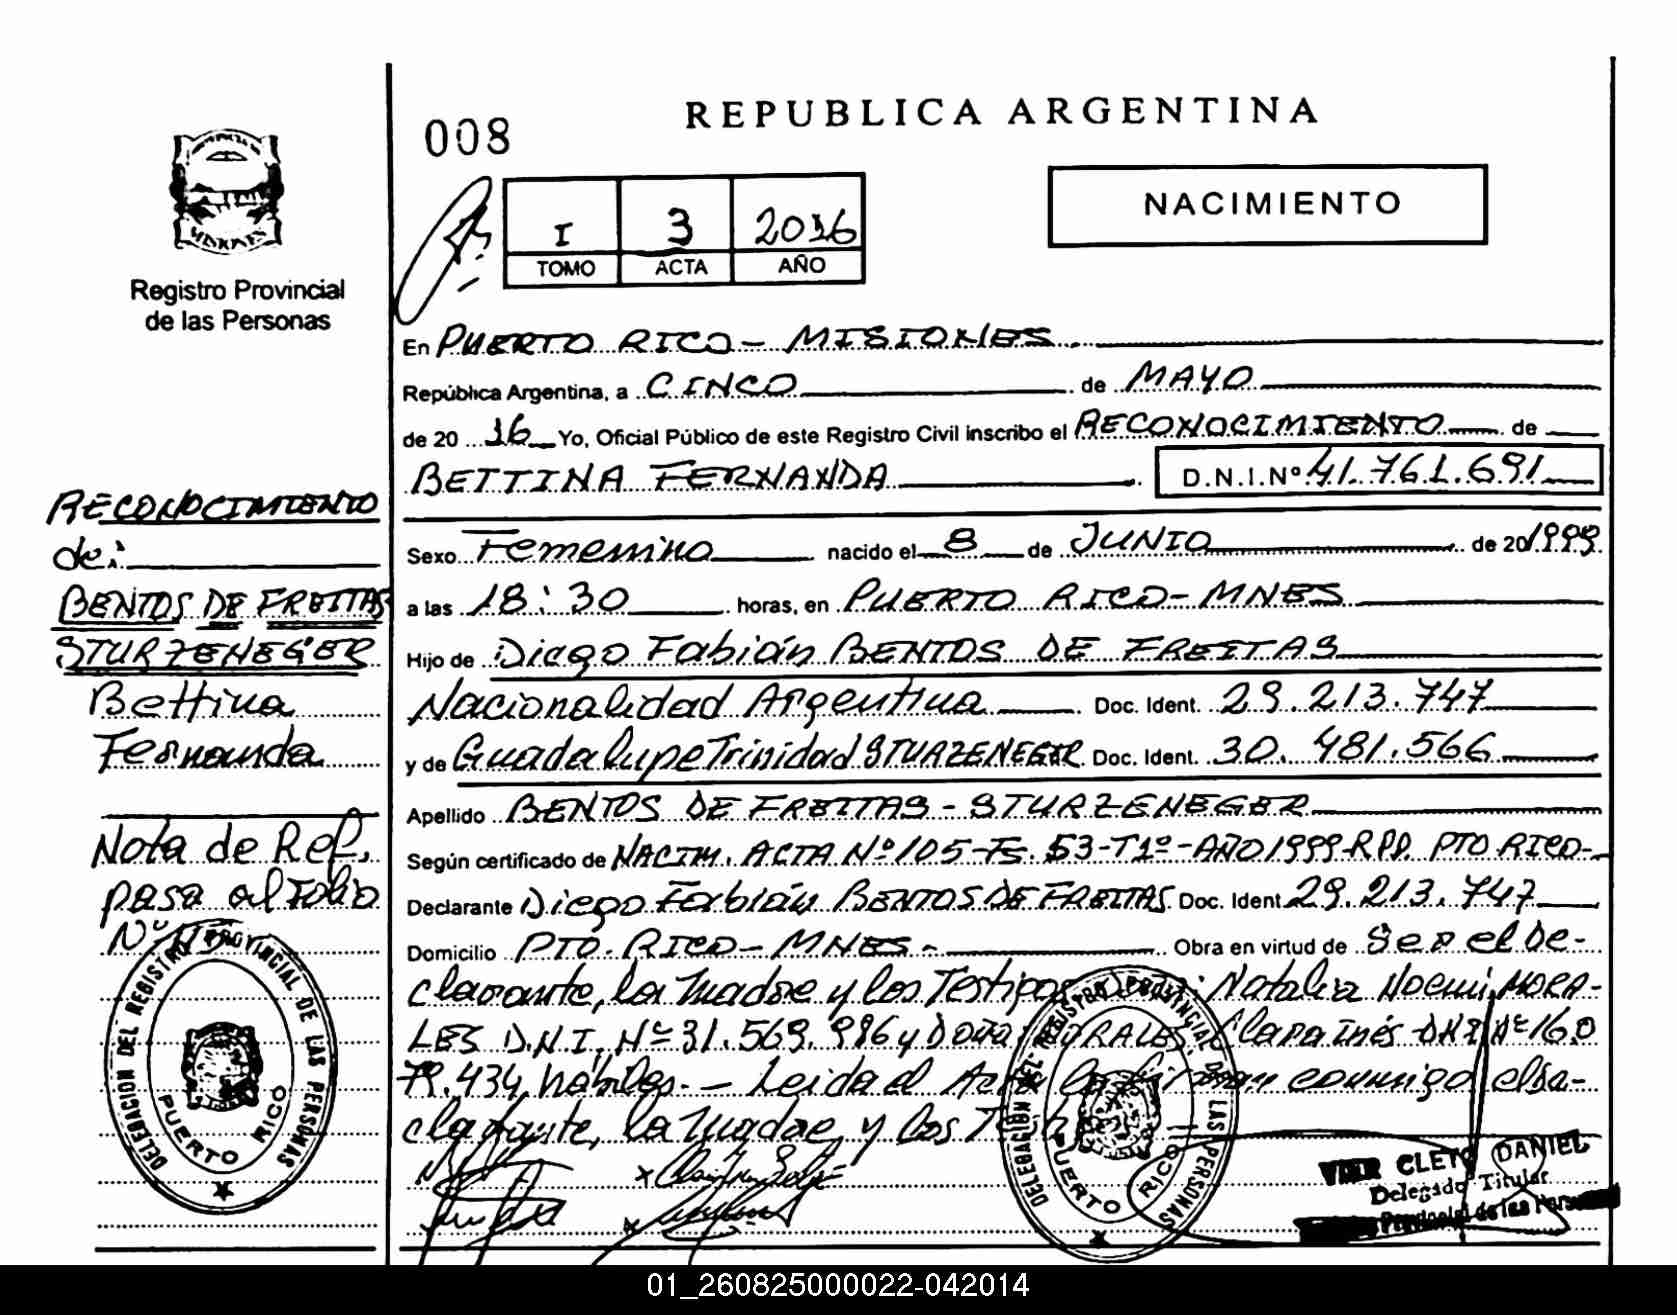 REPUBLICA ARGENTINA
008
NACIMIENTO
I 3 2016
TOMO ACTA AÑO
MISIONES
Registro Provincial
de las Personas
En PUERTO RICO - MISIONES
República Argentina, a CINCO de MAYO
de 20 16 Yo, Oficial Público de este Registro Civil inscribo el RECONOCIMIENTO de
BETTINA FERNANDA D.N.I. Nº 41.761.691
Sexo Femenino nacido el 8 de JUNIO de 20 1999
a las 18:30 horas, en PUERTO RICO - MNES
Hijo de Diego Fabián BENTOS DE FREITAS
Nacionalidad Argentina Doc. Ident. 29.213.747
y de Guadalupe Trinidad STURZENEGER Doc. Ident. 30.481.566
Apellido BENTOS DE FREITAS - STURZENEGER
Según certificado de NACIM. ACTA Nº 105 - Fs. 53 - T1º - AÑO 1999 - RPP. PTO RICO -
Declarante Diego Fabián BENTOS DE FREITAS Doc. Ident 29.213.747
Domicilio PTO. RICO - MNES - Obra en virtud de Ser el De-
clarante, la Madre y los Testigos : Natalia Noemi MORA-
LES D.N.I. Nº 31.569.986 y Doña MORALES Clara Inés DNI Nº 16.0
79.434 hábiles. - Leida el Acta conmigo el De-
clarante, la Madre, y los
RECONOCIMIENTO
de:
BENTOS DE FREITAS
STURZENEGER
Bettina
Fernanda
Nota de Ref.
pasa al Folio
DELEGACION DEL REGISTRO PROVINCIAL DE LAS PERSONAS
PUERTO RICO
DELEGACION DEL REGISTRO PROVINCIAL DE LAS PERSONAS
PUERTO RICO
CLETO DANIEL
Delegado Titular
Provincial de las Personas
01_260825000022-042014